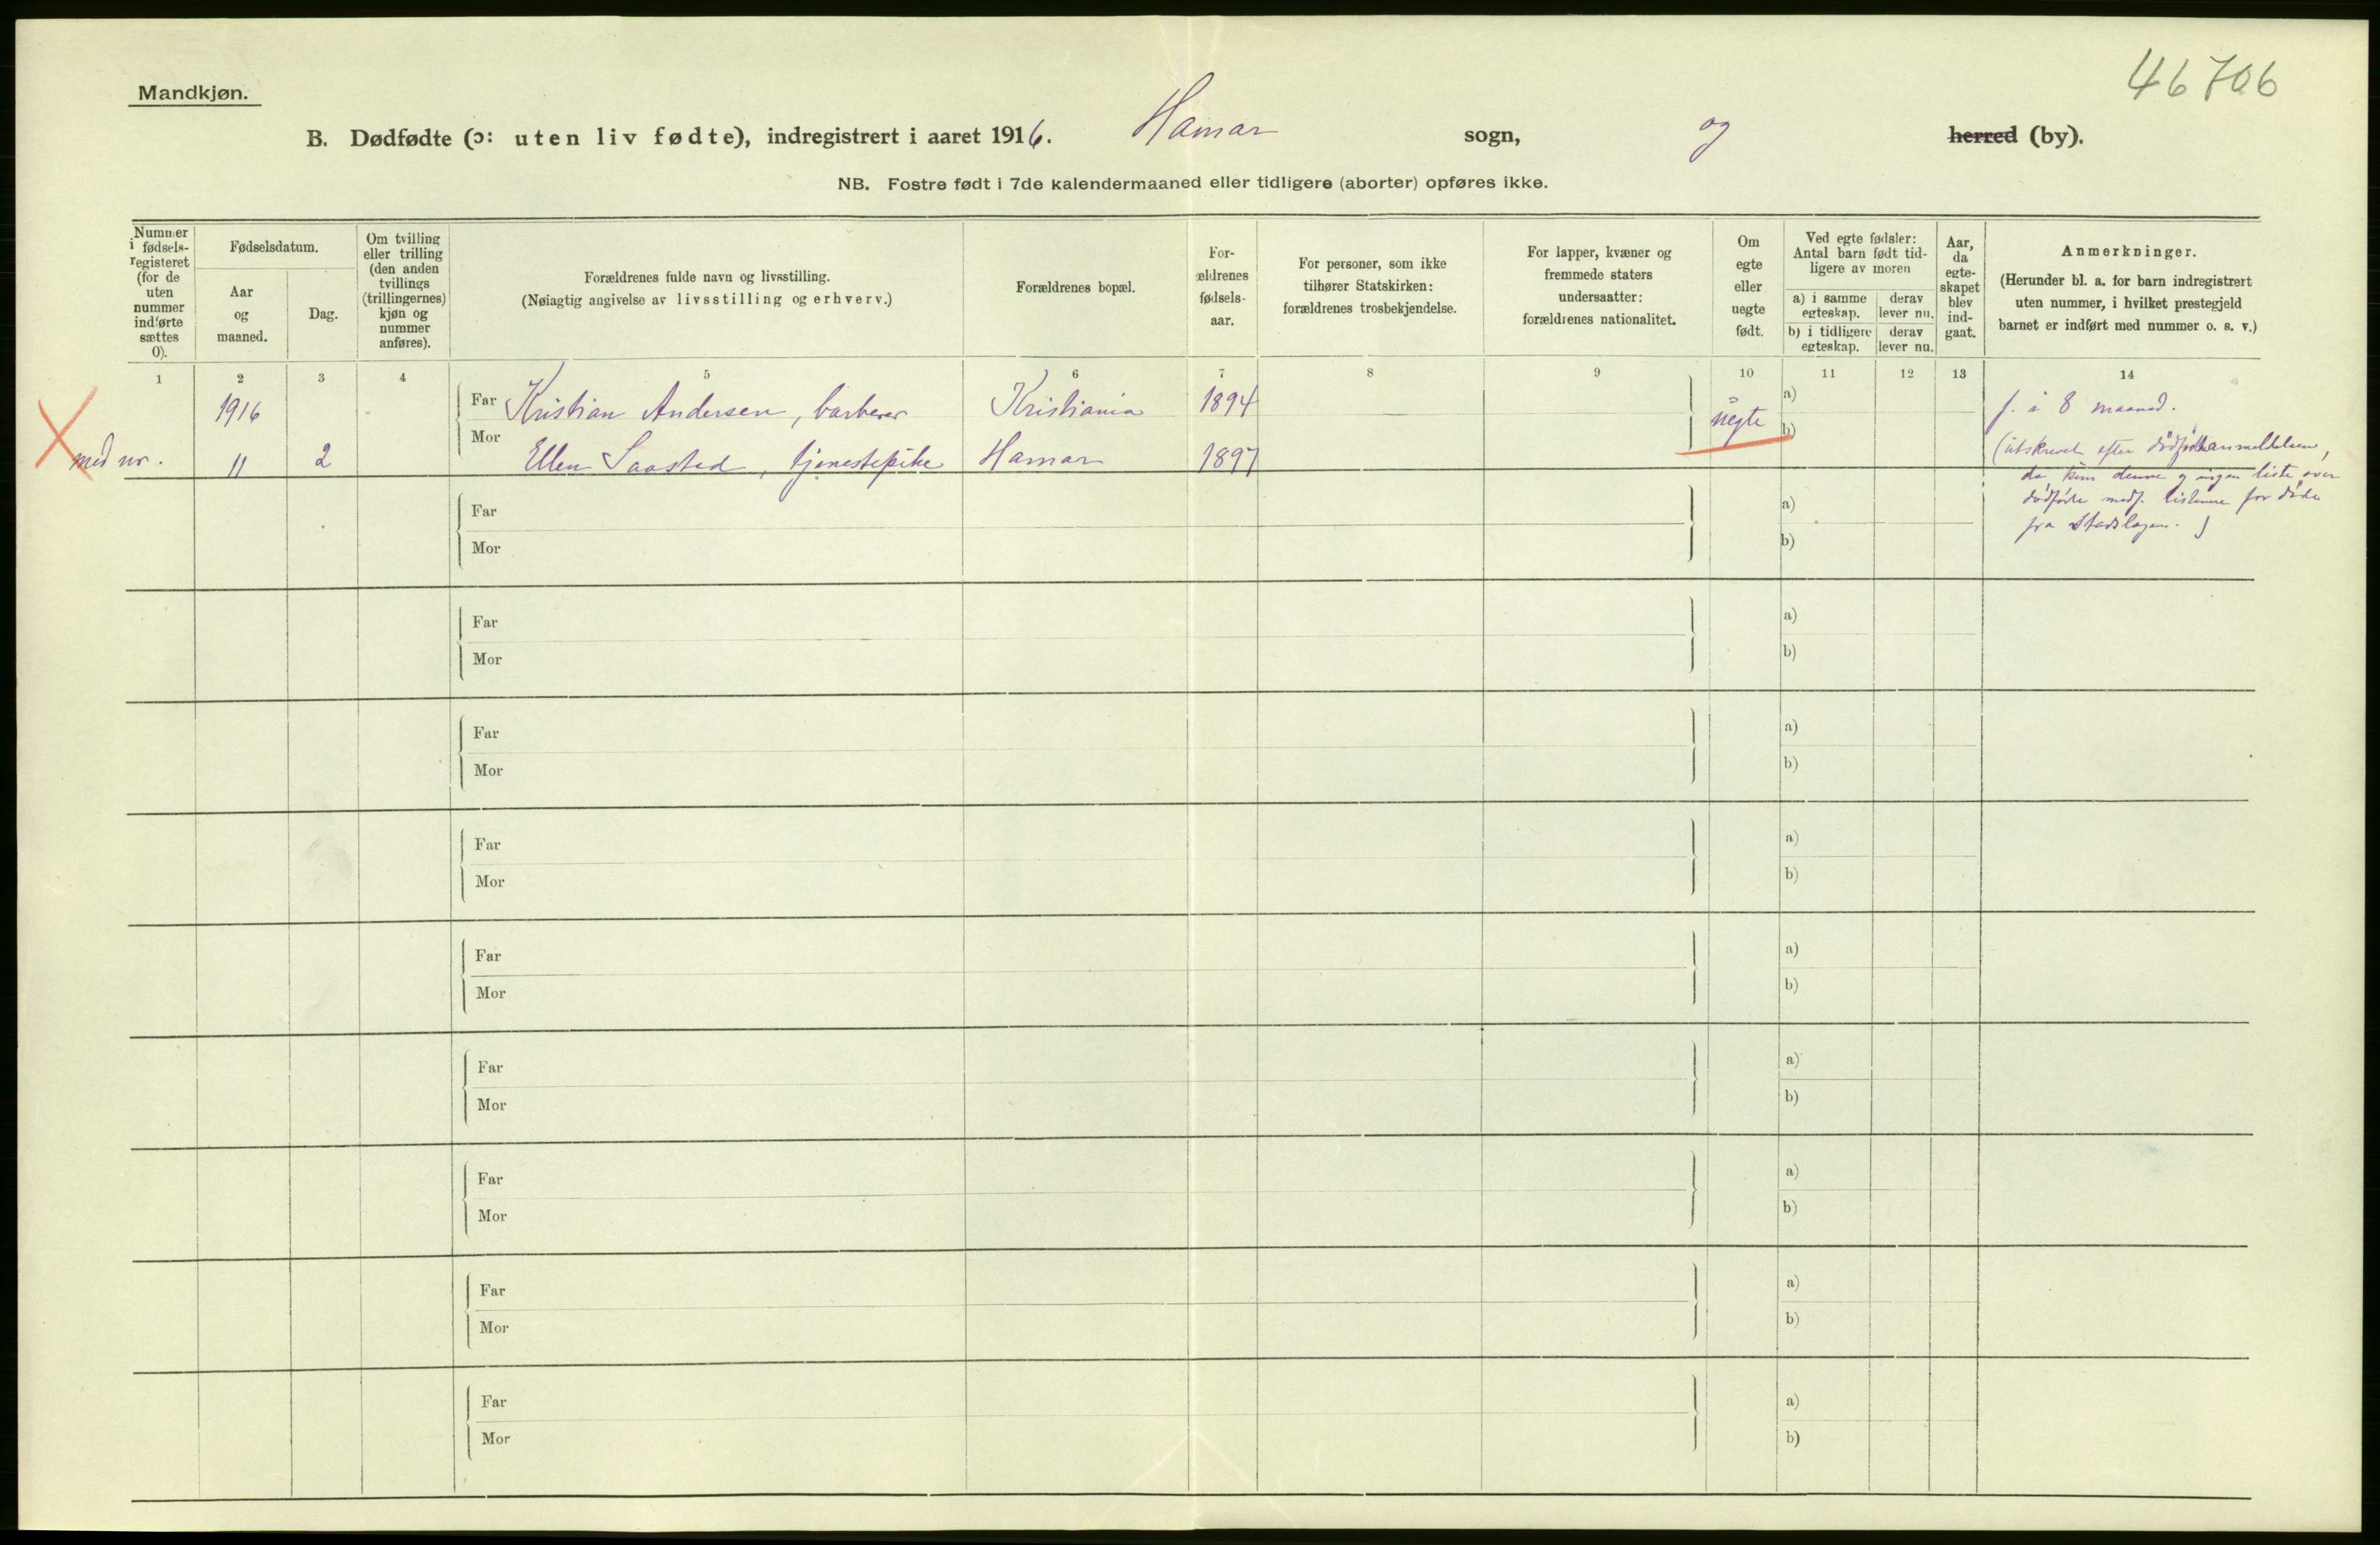 46706
Mandkjøn.
B. Dødfødte (ɔ: uten liv fødte), indregistrert i aaret 1916. Hamar sogn, og herred (by).
NB. Fostre født i 7de kalendermaaned eller tidligere (aborter) opføres ikke.
Nummer
i fødsels-
registeret
(for de
uten
nummer
indførte
sættes
0).
Fødselsdatum.
Aar
og
maaned.
Dag.
Om tvilling
eller trilling
(den anden
tvillings
(trillingernes)
kjøn og
nummer
anføres).
Forældrenes fulde navn og livsstilling.
(Nøiagtig angivelse av livsstilling og erhverv.)
Forældrenes bopæl.
For-
ældrenes
fødsels-
aar.
For personer, som ikke
tilhører Statskirken:
forældrenes trosbekjendelse.
For lapper, kvæner og
fremmede staters
undersaatter:
forældrenes nationalitet.
Om
egte
eller
uegte
født.
Ved egte fødsler:
Antal barn født tid-
ligere av moren
a) i samme
egteskap.
derav
lever nu.
b) i tidligere
egteskap.
derav
lever nu.
Aar,
da
egte-
skapet
blev
ind-
gaat.
Anmerkninger.
(Herunder bl. a. for barn indregistrert
uten nummer, i hvilket prestegjeld
barnet er indført med nummer o. s. v.)
1 2 3 4 5 6 7 8 9 10 11 12 13 14
1916 Far Kristian Andersen, barberer Kristiania 1894 uegte a) f. i 8 maaned.
med nr. 11 2 Mor Ellen Saasted, tjenestepike Hamar 1897 b) (utskrevet efter dødfødtanmeldelsen,
da kun denne og ingen liste over
dødfødte medf. listerne for døde
fra Stadslægen.)
Far a)
Mor b)
Far a)
Mor b)
Far a)
Mor b)
Far a)
Mor b)
Far a)
Mor b)
Far a)
Mor b)
Far a)
Mor b)
Far a)
Mor b)
Far a)
Mor b)